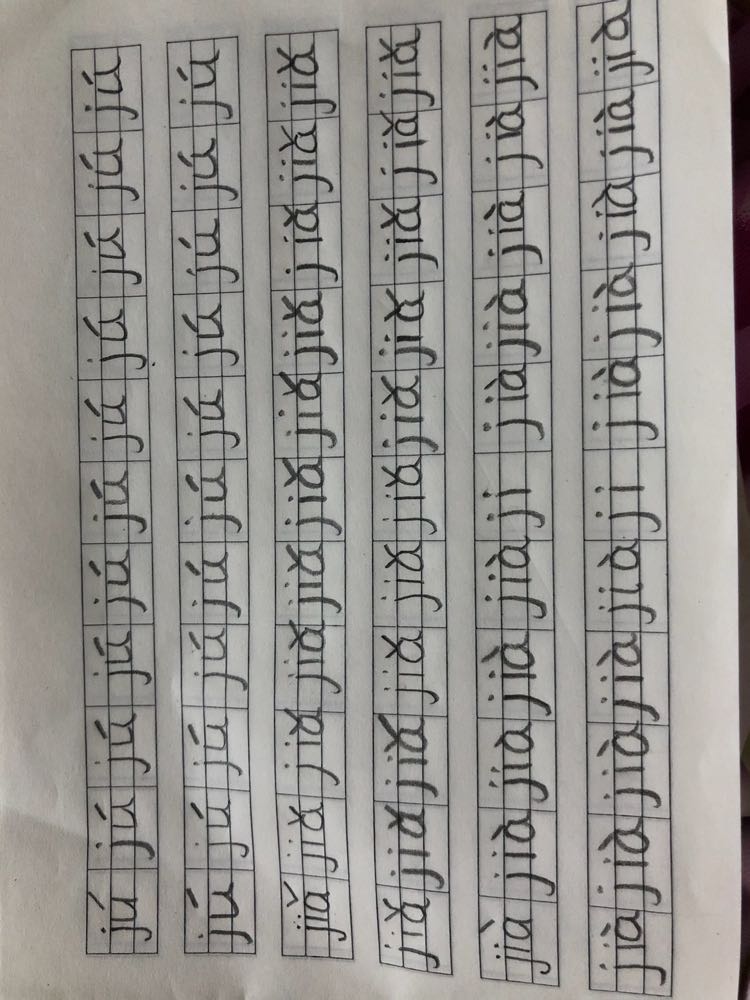 jú jú jú jú jú jú jú jú jú jú jú
jú jú jú jú jú jú jú jú jú jú jú
jiǎ jiǎ jiǎ jiǎ jiǎ jiǎ jiǎ jiǎ jiǎ jiǎ jiǎ
jiǎ jiǎ jiǎ jiǎ jiǎ jiǎ jiǎ jiǎ jiǎ jiǎ jiǎ
jià jià jià jià jià ji jià jià jià jià jià
jià jià jià jià jià ji jià jià jià jià jià